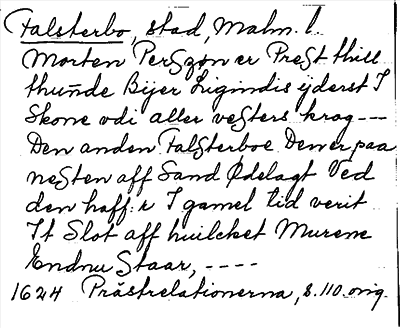 Falsterbo, stad, Malm. l.
Morten Perszøn er Prest thill
thuñde Bijer Ligindis ijderst I
Skone vdi aller vesters krog ---
Den anden Falsterboe. Den er paa
nesten aff Sand Ødelagt Ved
den haff: r I gamel tid verit
It Slot aff huilcket Murene
Endnu Staar, ----
1624 Prästrelationerna, s. 110. orig.